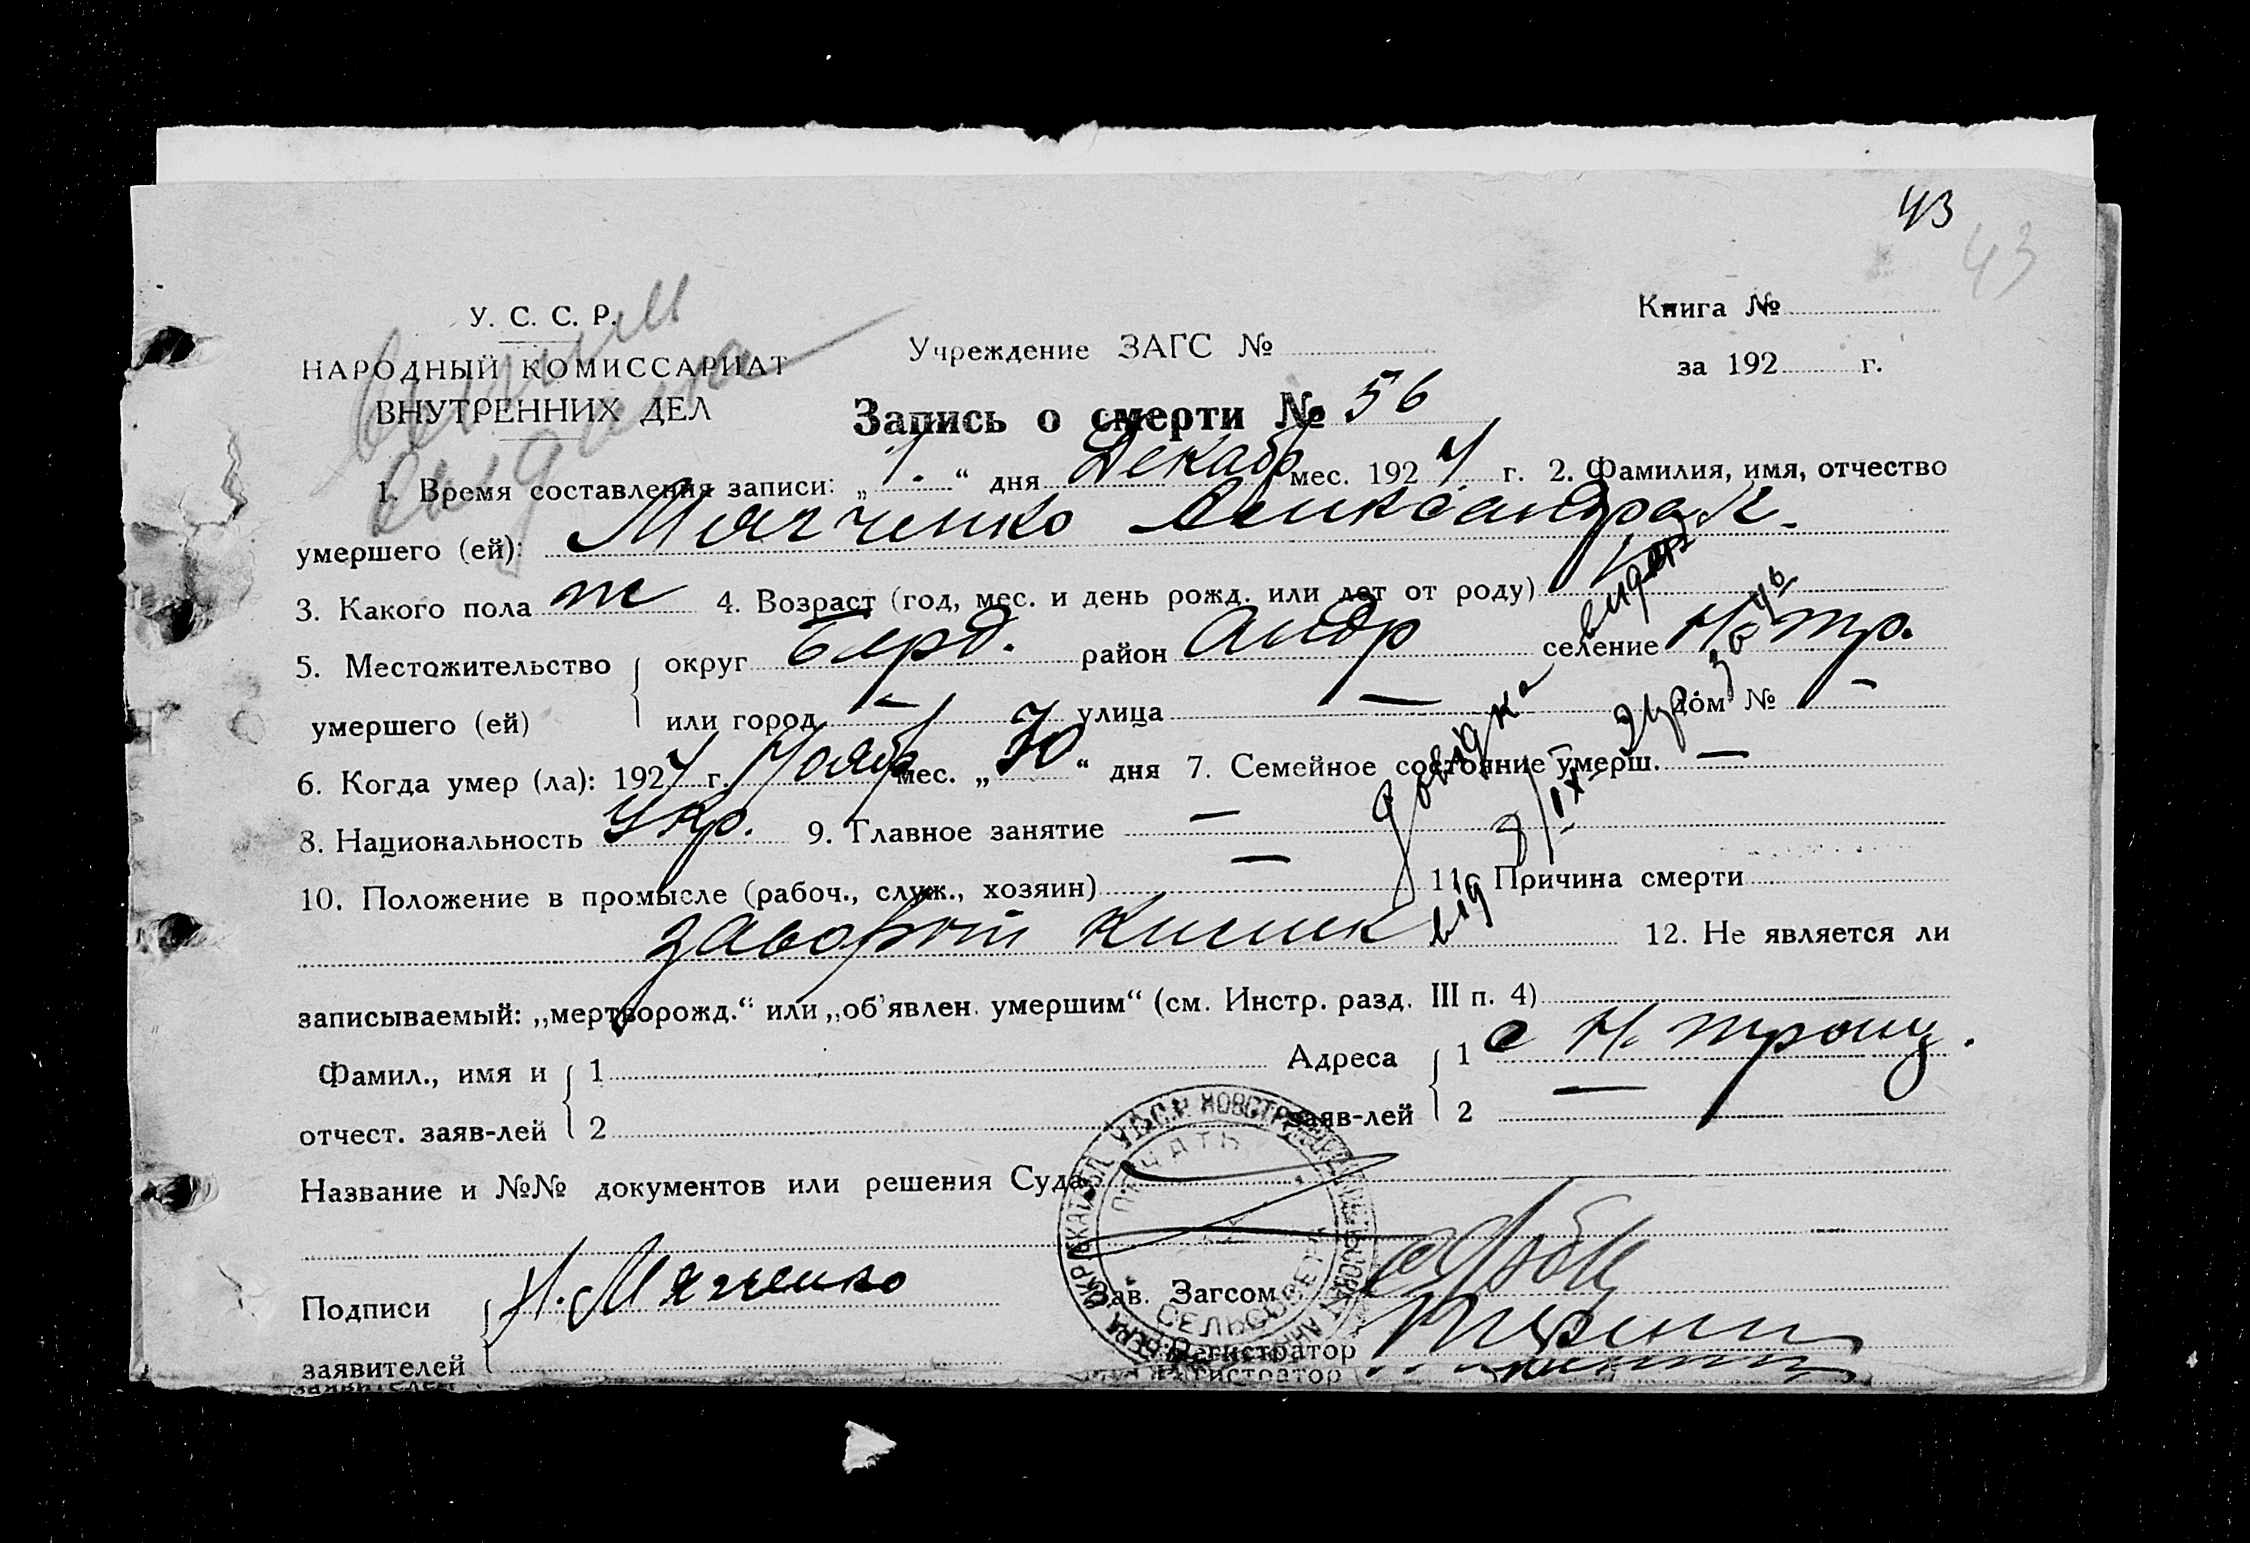 43
43
У. С. С. Р.
НАРОДНЫЙ КОМИССАРИАТ
ВНУТРЕННИХ ДЕЛ
выдана
Учреждение ЗАГС №
Книга №
за 192 г.
Запись о смерти № 56
1. Время составления записи: „ 1. “ дня Декабр мес. 1927 г. 2. Фамилия, имя, отчество
умершего (ей): Мягченко Александра К.
3. Какого пола ж 4. Возраст (год, мес. и день рожд. или лет от роду)
5. Местожительство умершего (ей) { округ Берд. район Андр селение Н тр.
или город — улица — дом № —
6. Когда умер (ла): 1927 г. Ноябр мес. „ 30 “ дня 7. Семейное состояние умерш. —
8. Национальность Укр. 9. Главное занятие —
10. Положение в промысле (рабоч., служ., хозяин) — 11. Причина смерти
заворот кишек 12. Не является ли
записываемый: „мертворожд.“ или „об'явлен. умершим“ (см. Инстр. разд. III п. 4)
довідка видана
від 3/IX
Фамил., имя и отчест. заяв-лей { 1
2
Адреса заяв-лей { 1 с Н. троиц.
2 —
Название и №№ документов или решения Суда
ПЕЧАТЬ
СЕЛЬСОВЕТА
Подписи Н. Мягченко
заявителей
Зав. Загсом
Регистратор